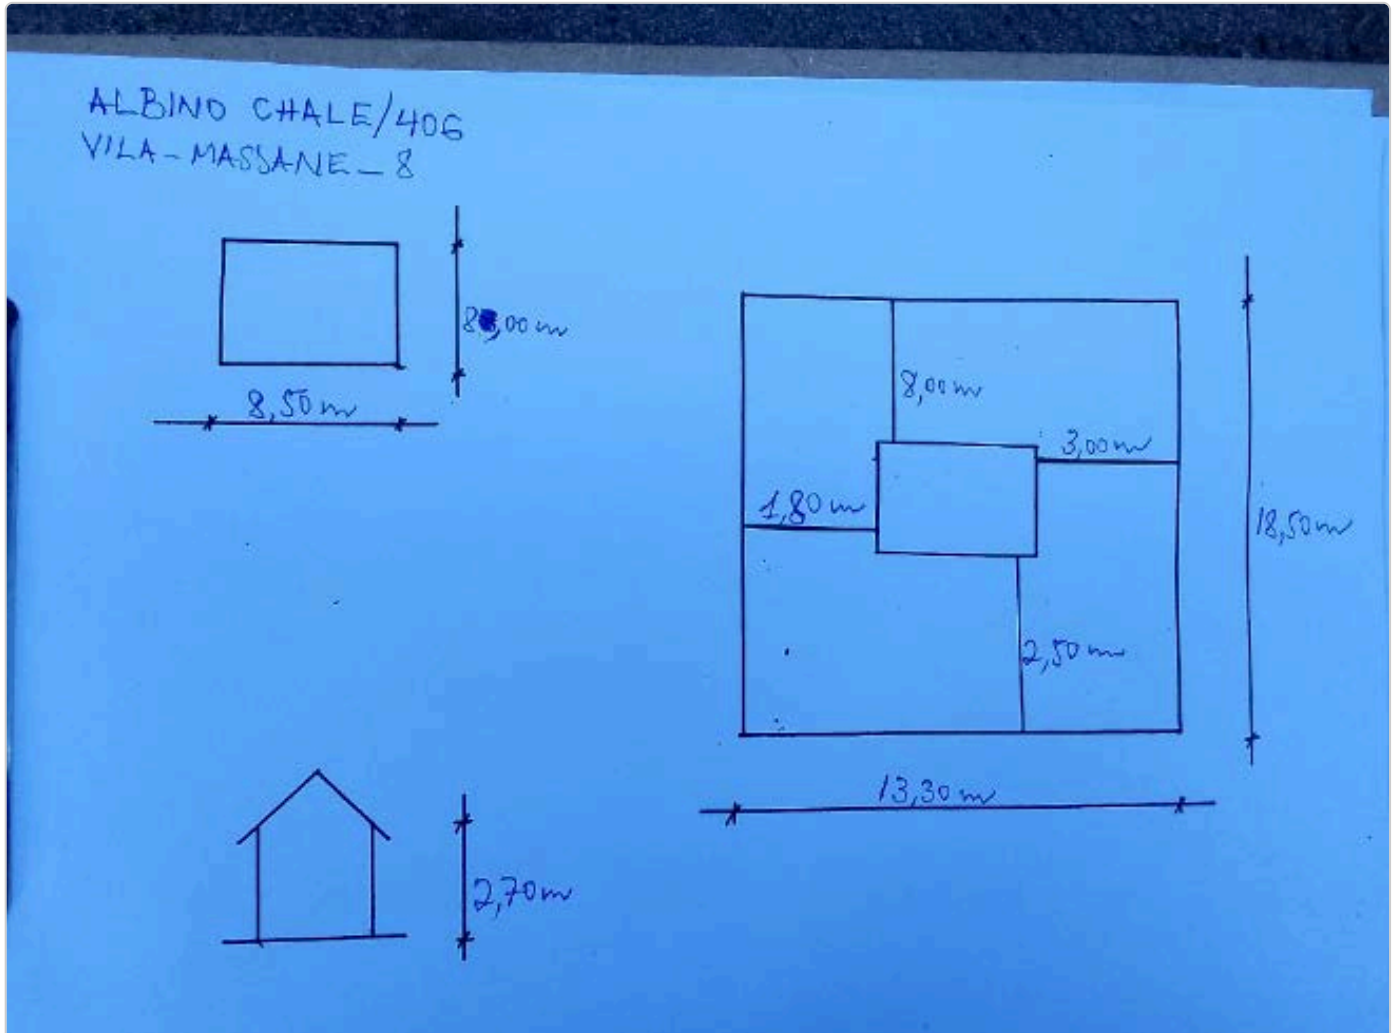 ALBINO CHALE/406
VILA-MASSANE-8
8,00m
8,50m
8,00m
3,00m
1,80m
18,50m
2,50m
13,30m
2,70m